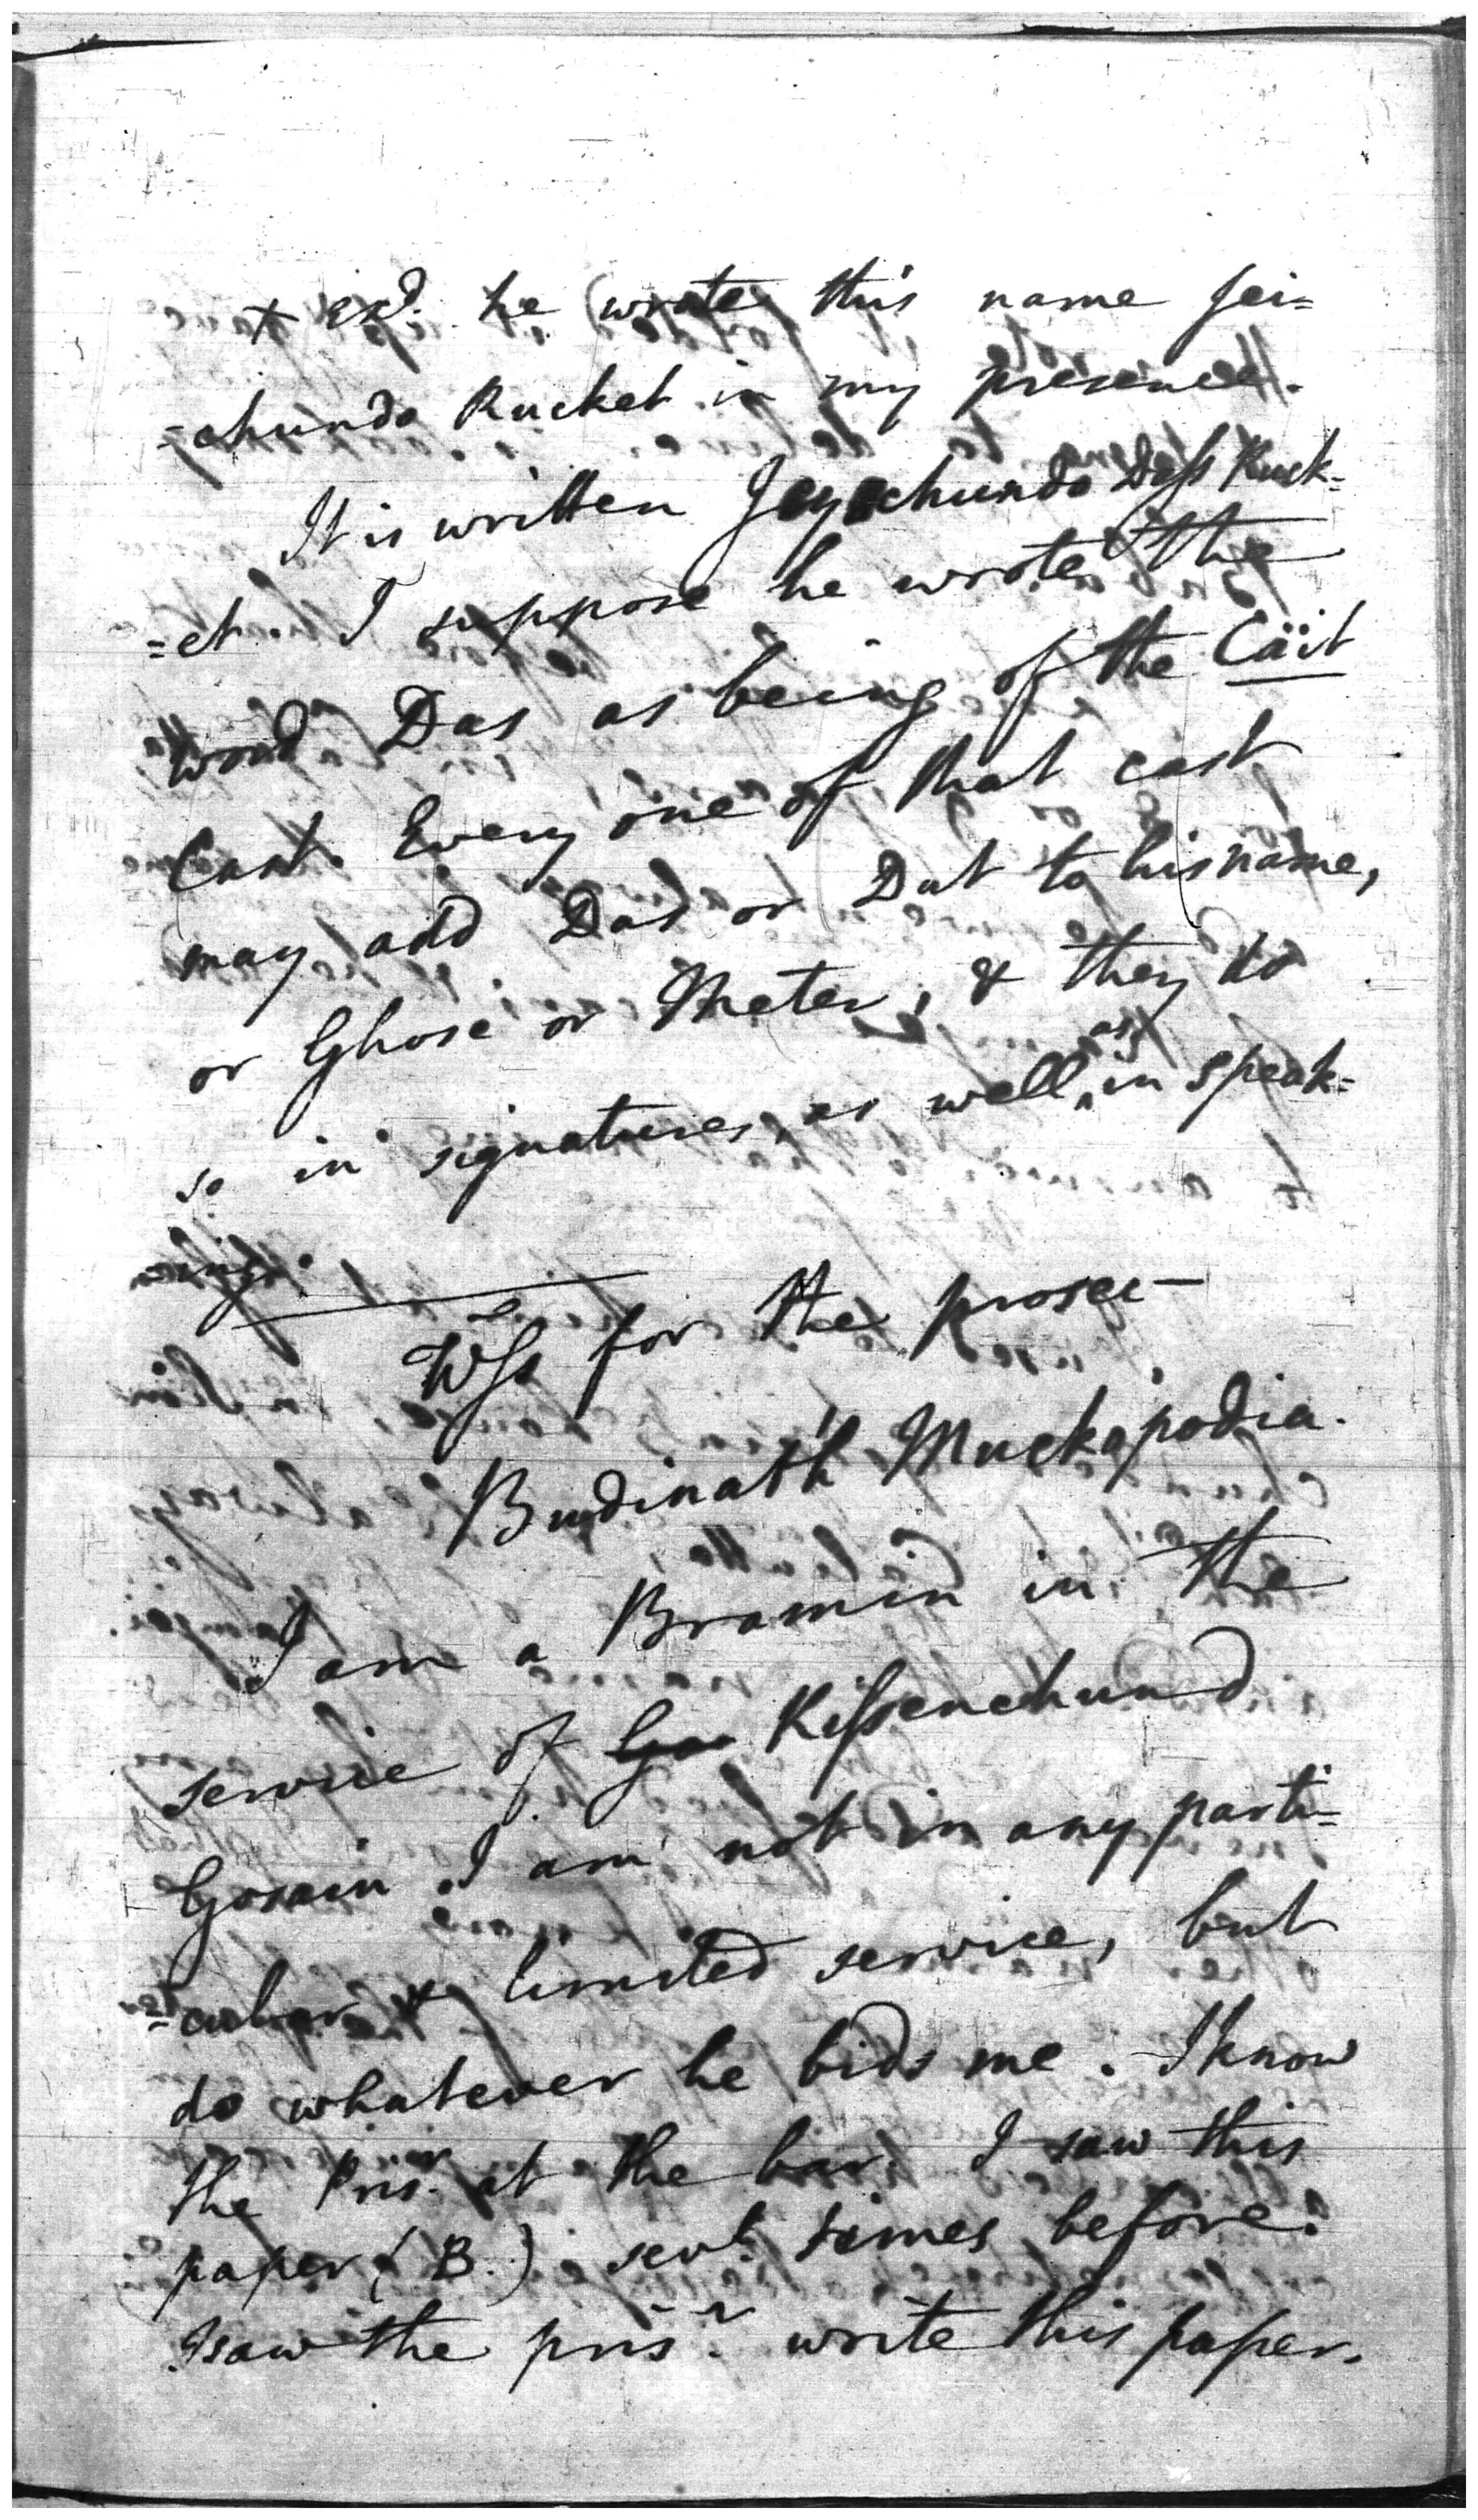 + exd. he wrote this name Jei=
=chundo Rucket in my presence.
It is written Joychundo Dass Ruck=
=et I suppose he wrote the
word Das as being of the Cäit
Cast. Every one of that cast
may add Das or Dut to his name,
or Ghose or Meter, & they do
so in signatures, as well as in speak=
=ing.
Wss for the prosec—
Budinath Muckapodia.
I am a Bramin in the
service of Gos Kissenchund
Gosain I am not in any parti=
=cular & limited service, but
do whatever he bids me. I know
the Prisr. at the bar. I saw this
paper (B.) sevl. times before.
I saw the prisr. write this paper.